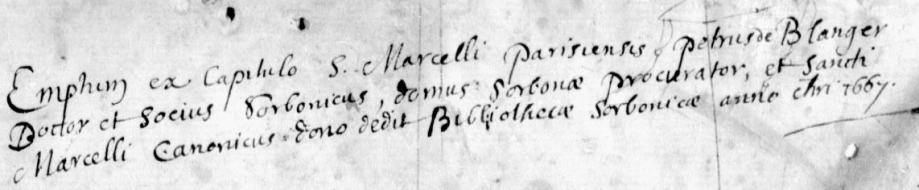 Emptum ex Capitulo S. Marcelli Parisiensis, Petrus de Blanger
Doctor et Socius Sorbonicus, domus Sorbonæ Procurator, et Sancti
Marcelli Canonicus dono dedit Bibliothecæ Sorbonicæ anno chri 1667.